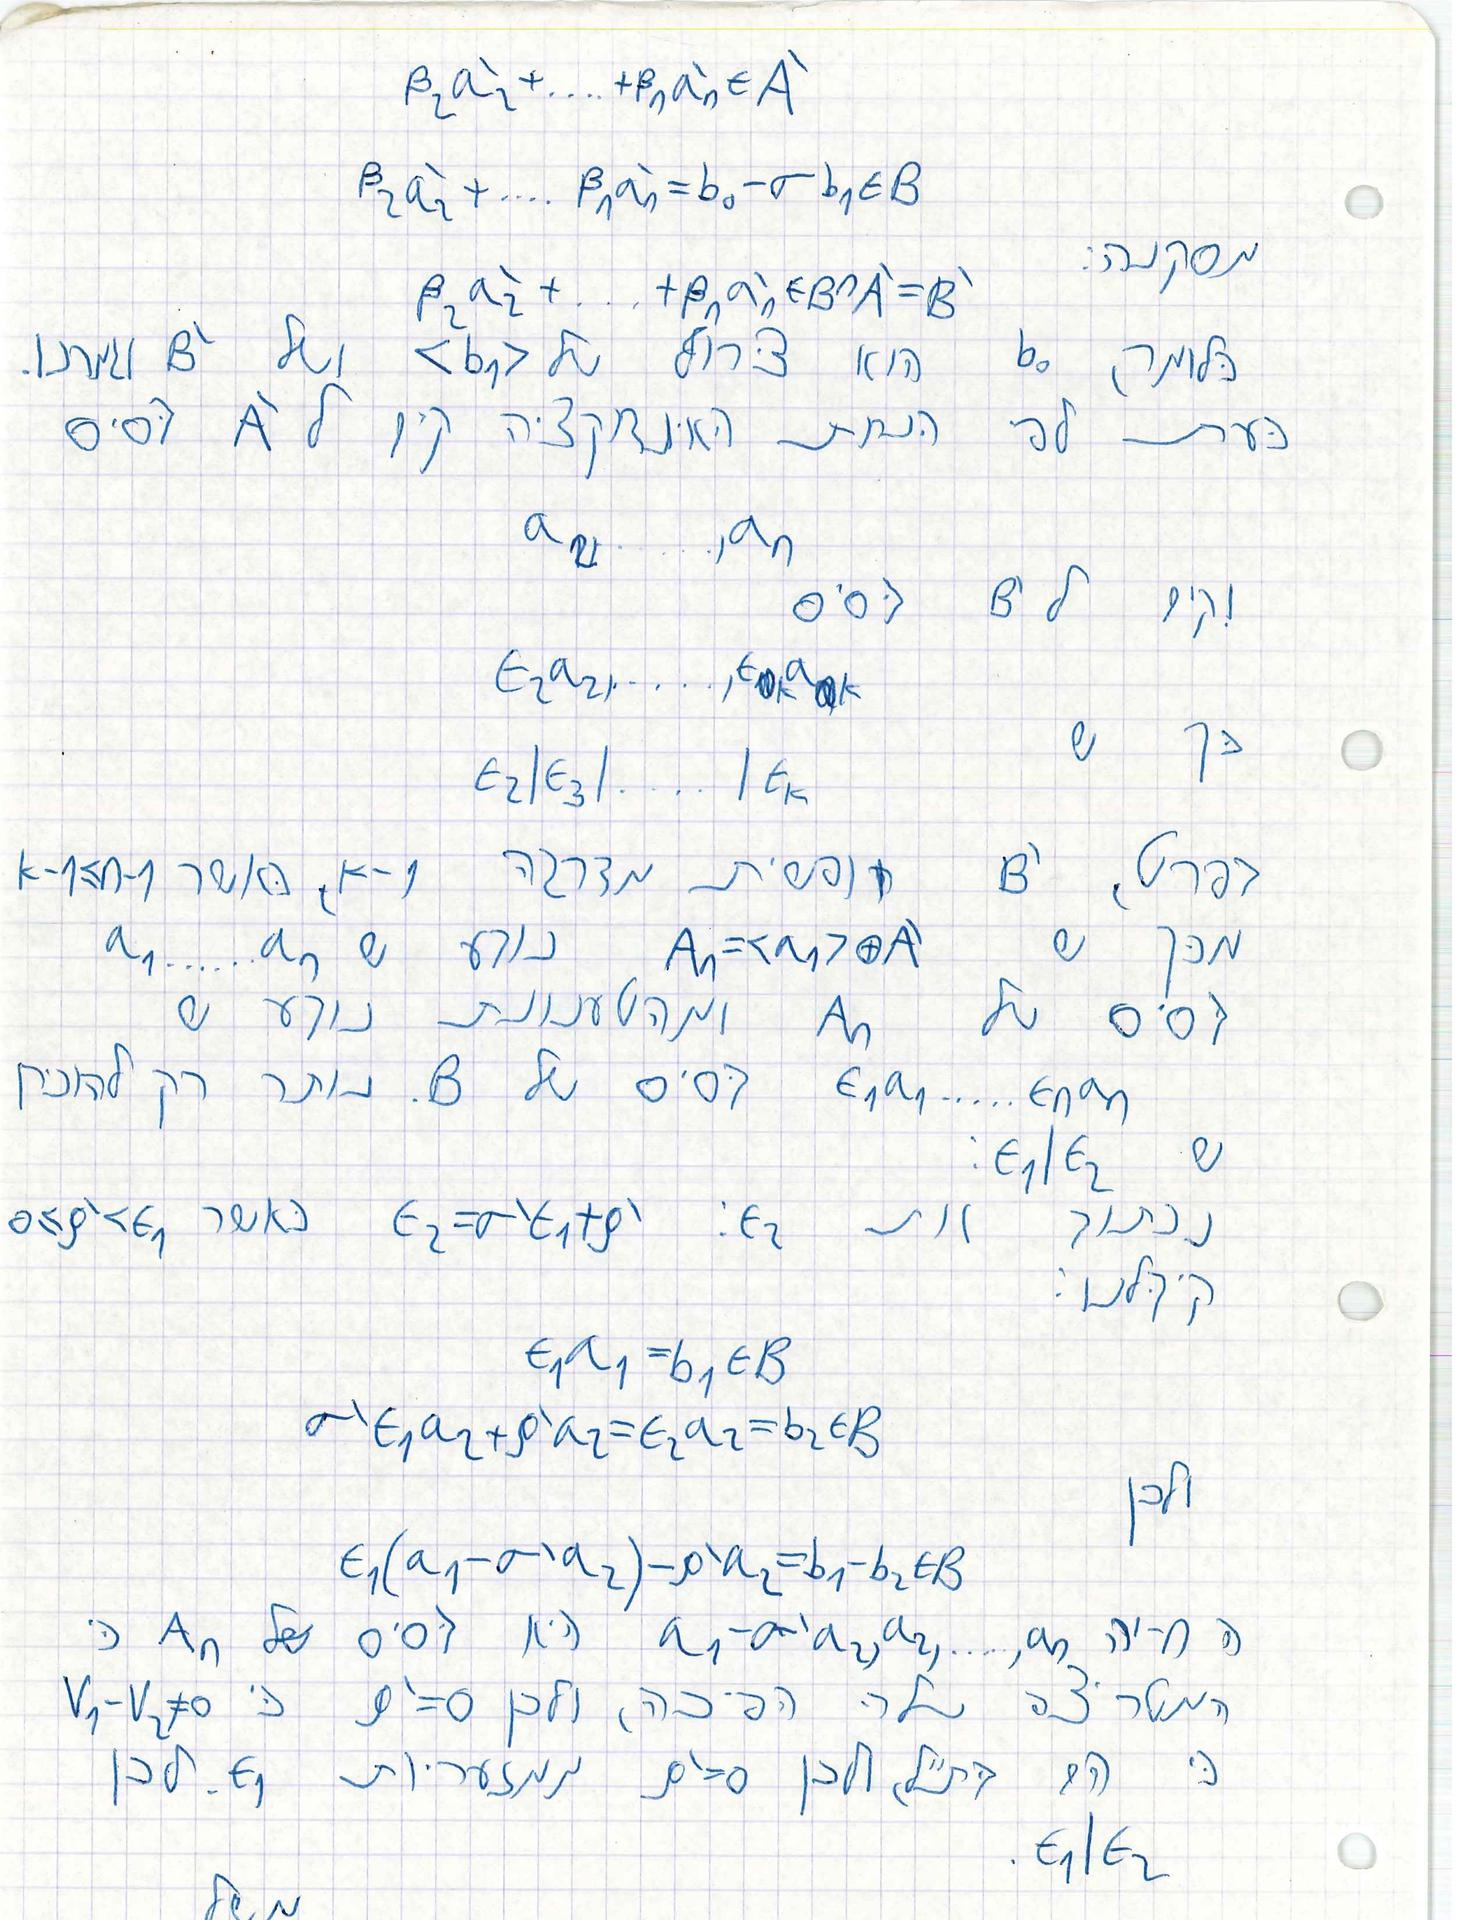 β₂a₂` + .... + βₙaₙ` ∈ A`
β₂a₂` + .... βₙaₙ` = b₀ - σb₁ ∈ B
מסקנה:
β₂a₂` + .... + βₙaₙ` ∈ B∩A` = B`
כלומר, b₀ הוא צירוף של <b₁> ושל B` וגמרנו.
כעת לפי הנחת האינדוקציה קיים ל A` בסיס
a₂, ....., aₙ
וקיים ל B` בסיס
ϵ₂a₂, ....., ϵₖaₖ
כך ש
ϵ₂|ϵ₃|.....|ϵₖ
בפרט, B` חופשית מדרגה k-1, כאשר k-1≤n-1
מכך ש Aₙ=<a₁>⊕A` נובע ש a₁......aₙ
בסיס של Aₙ ומהטענות נובע ש
ϵ₁a₁.....ϵₙaₙ בסיס של B. נותר רק להוכיח
ש ϵ₁|ϵ₂:
נכתוב את ϵ₂: ϵ₂=σ`ϵ₁+ρ` כאשר 0≤ρ`<ϵ₁
קיבלנו:
ϵ₁a₁=b₁∈B
σ`ϵ₁a₂+ρ`a₂=ϵ₂a₂=b₂∈B
ולכן
ϵ₁(a₁-σ`a₂)-ρ`a₂=b₁-b₂∈B
ה n-יה a₁-σ`a₂,a₂,....,aₙ היא בסיס של Aₙ כי
המטריצה שלה הפיכה, ולכן ρ`=0 כי V₁-V₂≠0
כי הם בת"ל, ולכן ρ`=0 ממזעריות ϵ₁. לכן
ϵ₁|ϵ₂.
משל